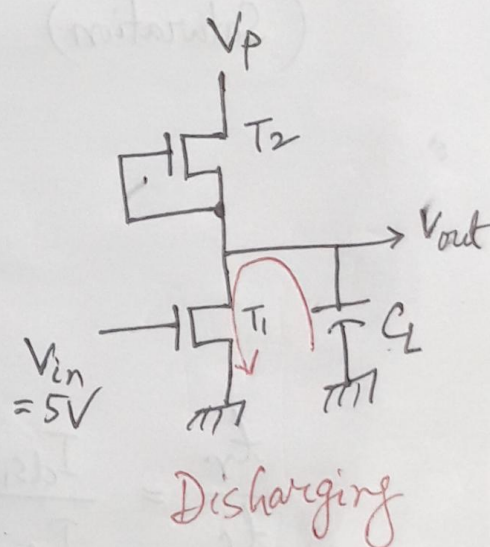 Vp
T2
Vout
T1
CL
Vin
= 5V
Disharging